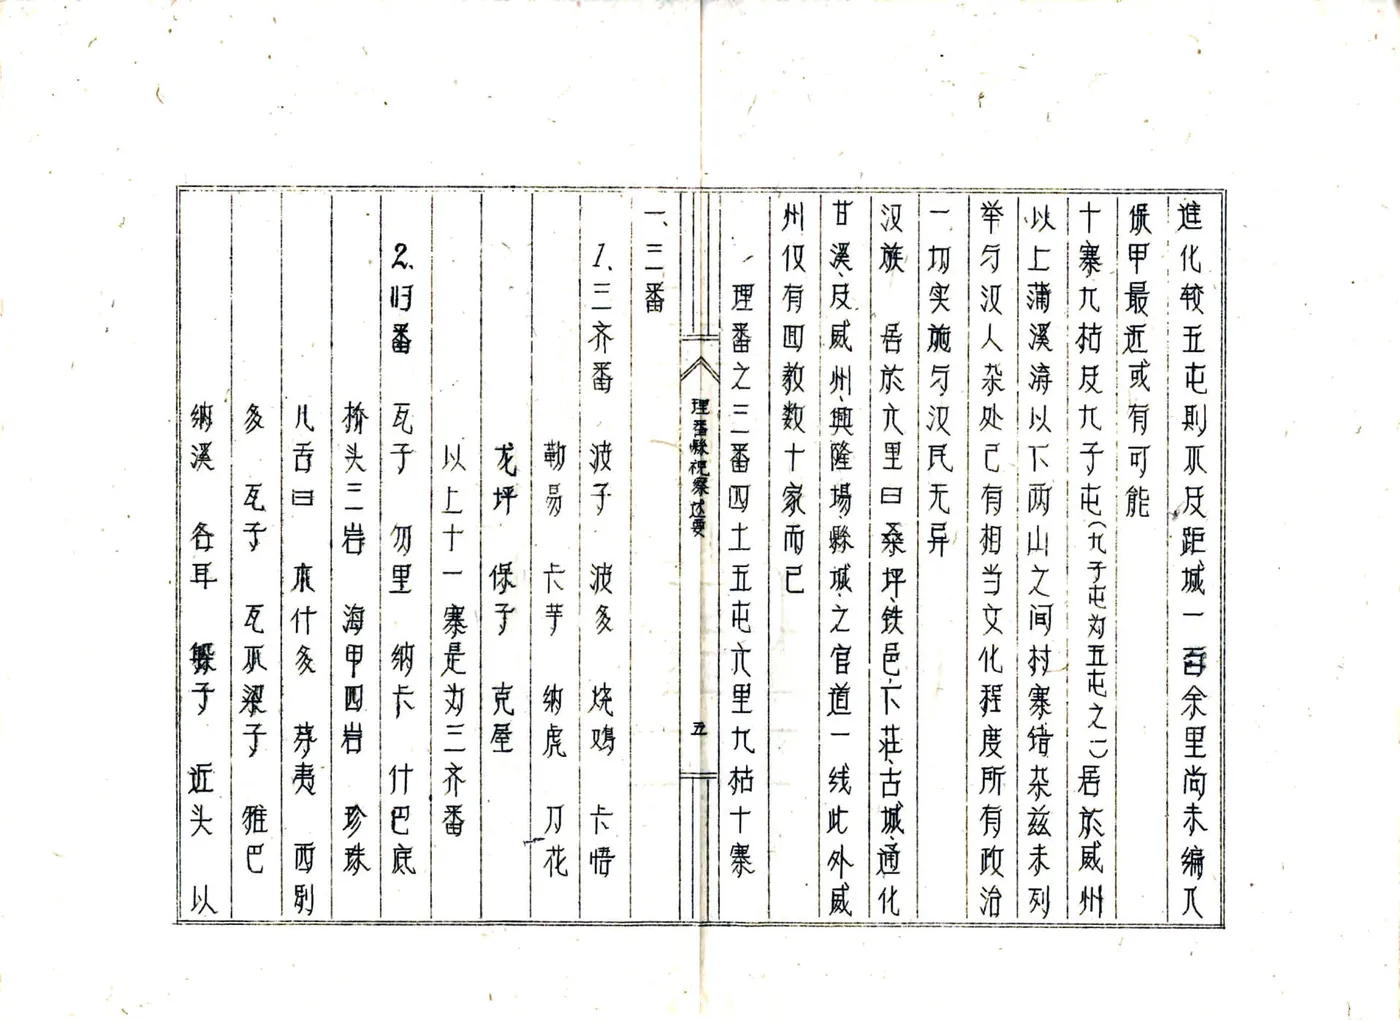 進化较五屯則不及距城一百余里尚未编入
保甲最近或有可能
十寨九枯及九子屯（九子屯为五屯之一）居於威州
以上蒲溪溝以下两山之间村寨错杂兹未列
举与汉人杂处已有相当文化程度所有政治
一切实施与汉民无异
汉族　居於六里曰桑坪、铁邑、下莊、古城、通化
甘溪、及威州、興隆場、縣城、之官道一线此外威
州仅有回教数十家而已
理番之三番四土五屯六里九枯十寨
理番縣視察述要
五
一、三番
1、三齐番　波子　波多　烧鸡　卡悟
勒易　卡芋　纳虎　刀花
龙坪　保子　克屋
以上十一寨是为三齐番
2.归番　瓦子　勿里　纳卡　什巴底
桥头三岩　海甲四岩　珍珠
儿舌曰　來什多　芽夷　西别
多　瓦子　瓦不梁子　雅巴
纳溪　各耳　子　近头　以